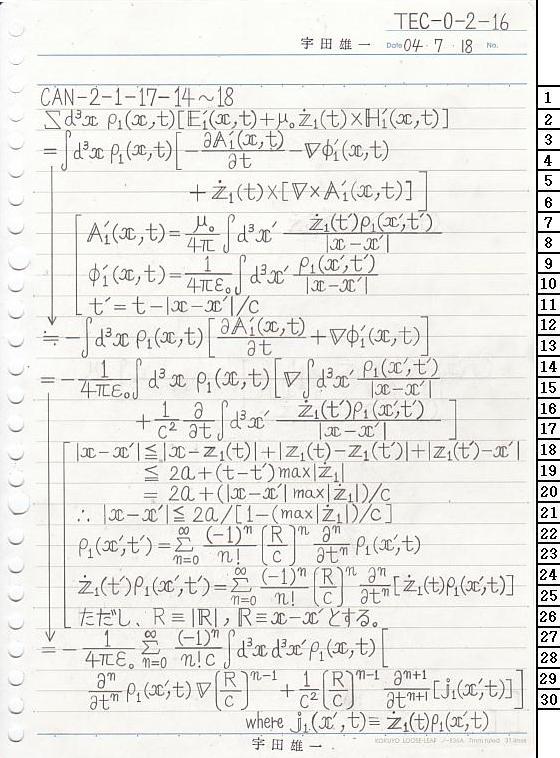 TEC-0-2-16
宇田雄一 Date 04・7・18 No.
CAN-2-1-17-14~18
∑d³x ρ₁(x,t)[E₁′(x,t)+μ₀ż₁(t)×H₁′(x,t)]
=∫d³x ρ₁(x,t)[-∂A₁′(x,t)/∂t-∇φ₁′(x,t)
+ż₁(t)×[∇×A₁′(x,t)]]
[A₁′(x,t)=μ₀/4π ∫d³x′ ż₁(t′)ρ₁(x′,t′)/|x-x′|
φ₁′(x,t)=1/4πε₀ ∫d³x′ ρ₁(x′,t′)/|x-x′|
t′=t-|x-x′|/c
≒-∫d³x ρ₁(x,t)[∂A₁′(x,t)/∂t+∇φ₁′(x,t)]
=-1/4πε₀ ∫d³x ρ₁(x,t)[∇∫d³x′ ρ₁(x′,t′)/|x-x′|
+1/c² ∂/∂t ∫d³x′ ż₁(t′)ρ₁(x′,t′)/|x-x′|]
[|x-x′|≦|x-z₁(t)|+|z₁(t)-z₁(t′)|+|z₁(t′)-x′|
≦2a+(t-t′)max|ż₁|
=2a+(|x-x′|max|ż₁|)/c
∴|x-x′|≦2a/[1-(max|ż₁|)/c]
ρ₁(x′,t′)=∑ₙ₌₀^∞ (-1)ⁿ/n! (R/c)ⁿ ∂ⁿ/∂tⁿ ρ₁(x′,t)
ż₁(t′)ρ₁(x′,t′)=∑ₙ₌₀^∞ (-1)ⁿ/n! (R/c)ⁿ ∂ⁿ/∂tⁿ [ż₁(t)ρ₁(x′,t)]
ただし、R≡|R|,R≡x-x′とする。
=-1/4πε₀ ∑ₙ₌₀^∞ (-1)ⁿ/n!c ∫d³x d³x′ρ₁(x,t)[
∂ⁿ/∂tⁿ ρ₁(x′,t)∇(R/c)ⁿ⁻¹+1/c² (R/c)ⁿ⁻¹ ∂ⁿ⁺¹/∂tⁿ⁺¹ [j₁(x′,t)]]
where j₁(x′,t)≡ż₁(t)ρ₁(x′,t)
宇田雄一
KOKUYO LOOSE-LEAF 7mm ruled
1
2
3
4
5
6
7
8
9
10
11
12
13
14
15
16
17
18
19
20
21
22
23
24
25
26
27
28
29
30